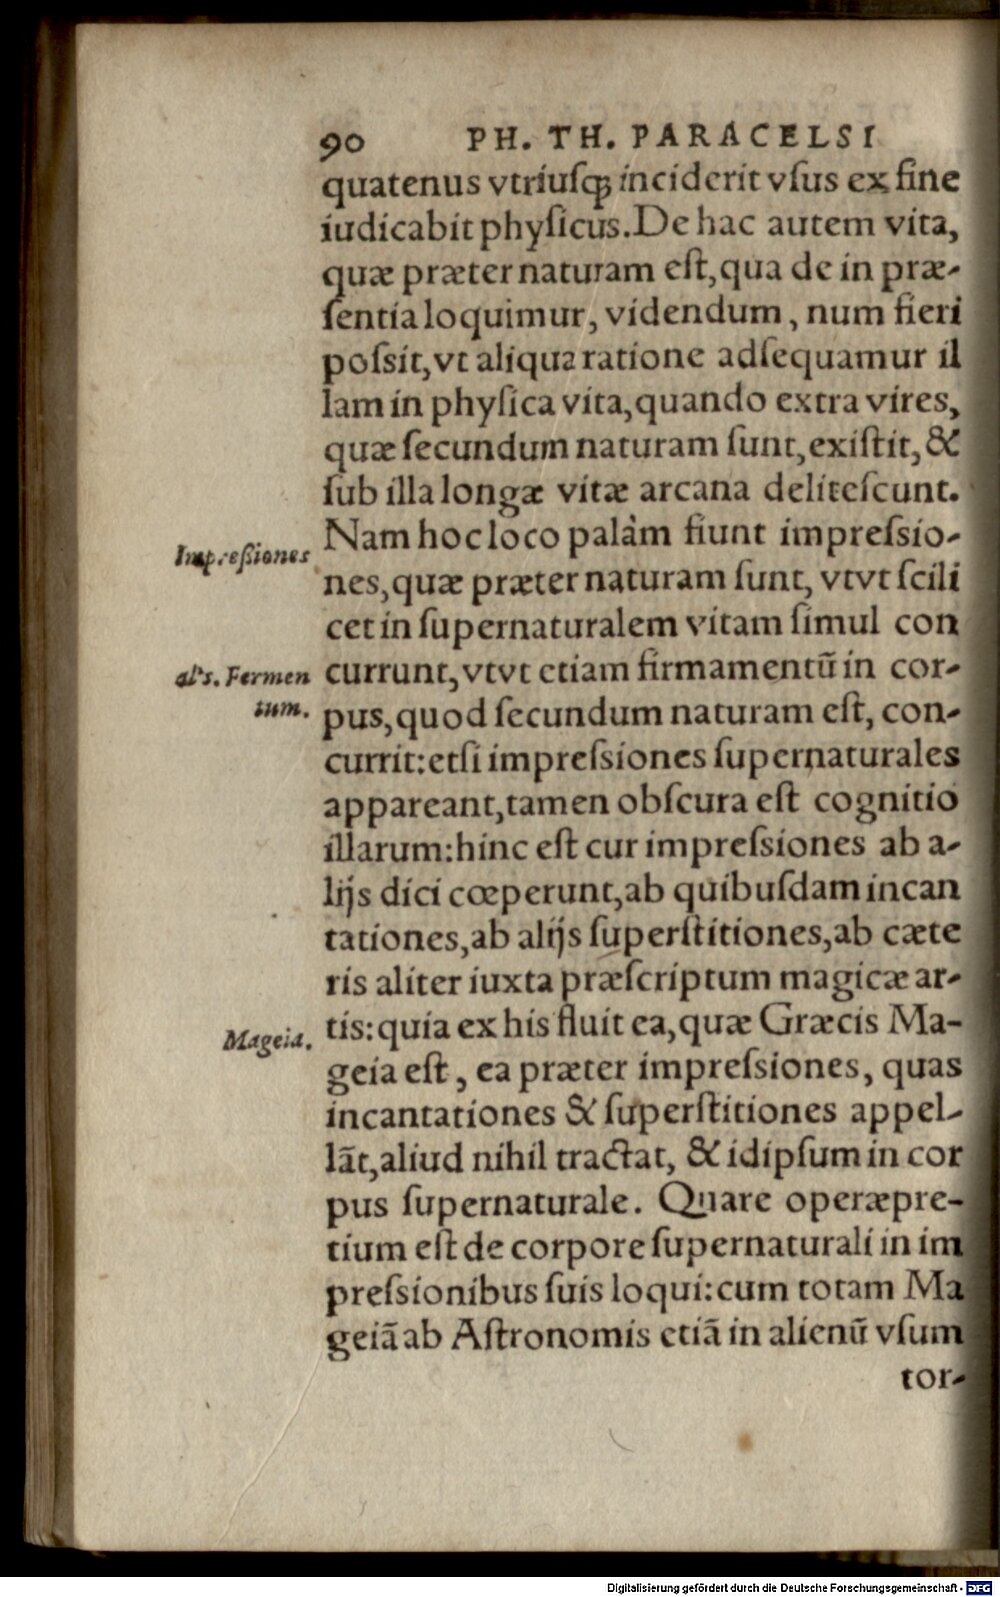 90 PH. TH. PARACELSI
quatenus vtriuſq; inciderit vſus ex fine
iudicabit phyſicus. De hac autem vita,
quæ præter naturam eſt, qua de in præ-
ſentia loquimur, videndum, num fieri
poſsit, vt aliqua ratione adſequamur il
lam in phyſica vita, quando extra vires,
quæ ſecundum naturam ſunt, exiſtit, &
ſub illa longæ vitæ arcana deliteſcunt.
Nam hoc loco palàm fiunt impreſsio-
Impreßiones
nes, quæ præter naturam ſunt, vtvt ſcili
cet in ſupernaturalem vitam ſimul con
currunt, vtvt etiam firmamentũ in cor-
al's. Fermen
tum.
pus, quod ſecundum naturam eſt, con-
currit: etſi impreſsiones ſupernaturales
appareant, tamen obſcura eſt cognitio
illarum: hinc eſt cur impreſsiones ab a-
lijs dici cœperunt, ab quibuſdam incan
tationes, ab alijs ſuperſtitiones, ab cæte
ris aliter iuxta præſcriptum magicæ ar-
tis: quia ex his fluit ea, quæ Græcis Ma-
Mageia.
geia eſt, ea præter impreſsiones, quas
incantationes & ſuperſtitiones appel-
lãt, aliud nihil tractat, & idipſum in cor
pus ſupernaturale. Quare operæpre-
tium eſt de corpore ſupernaturali in im
preſsionibus ſuis loqui: cum totam Ma
geiã ab Aſtronomis etiã in alienũ vſum
tor-
Digitalisierung gefördert durch die Deutsche Forschungsgemeinschaft - DFG